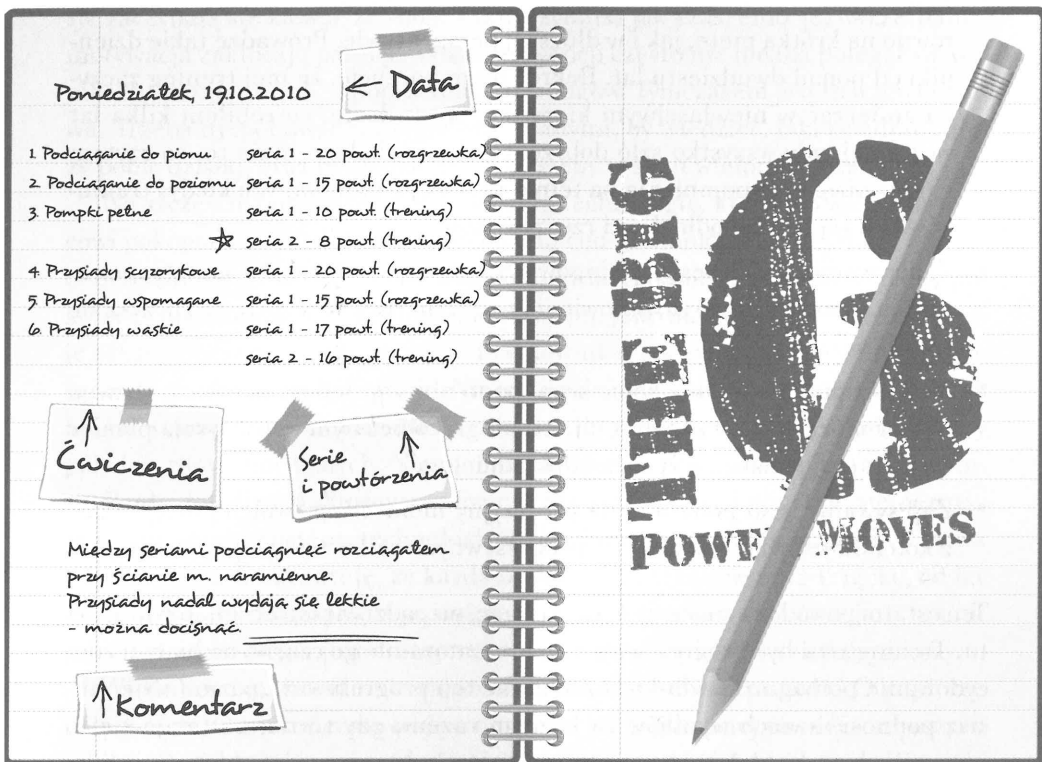 Poniedziałek, 19.10.2010
← Data
1. Podciąganie do pionu seria 1 - 20 powt. (rozgrzewka)
2. Podciąganie do poziomu seria 1 - 15 powt. (rozgrzewka)
3. Pompki pełne seria 1 - 10 powt. (trening)
seria 2 - 8 powt. (trening)
4. Przysiady scyzorykowe seria 1 - 20 powt. (rozgrzewka)
5. Przysiady wspomagane seria 1 - 15 powt. (rozgrzewka)
6. Przysiady wąskie seria 1 - 17 powt. (trening)
seria 2 - 16 powt. (trening)
Ćwiczenia
Serie
i powtórzenia
Między seriami podciągnięć rozciągałem
przy ścianie m. naramienne.
Przysiady nadal wydają się lekkie
- można docisnąć.
Komentarz
THE BIG
6
POWER MOVES